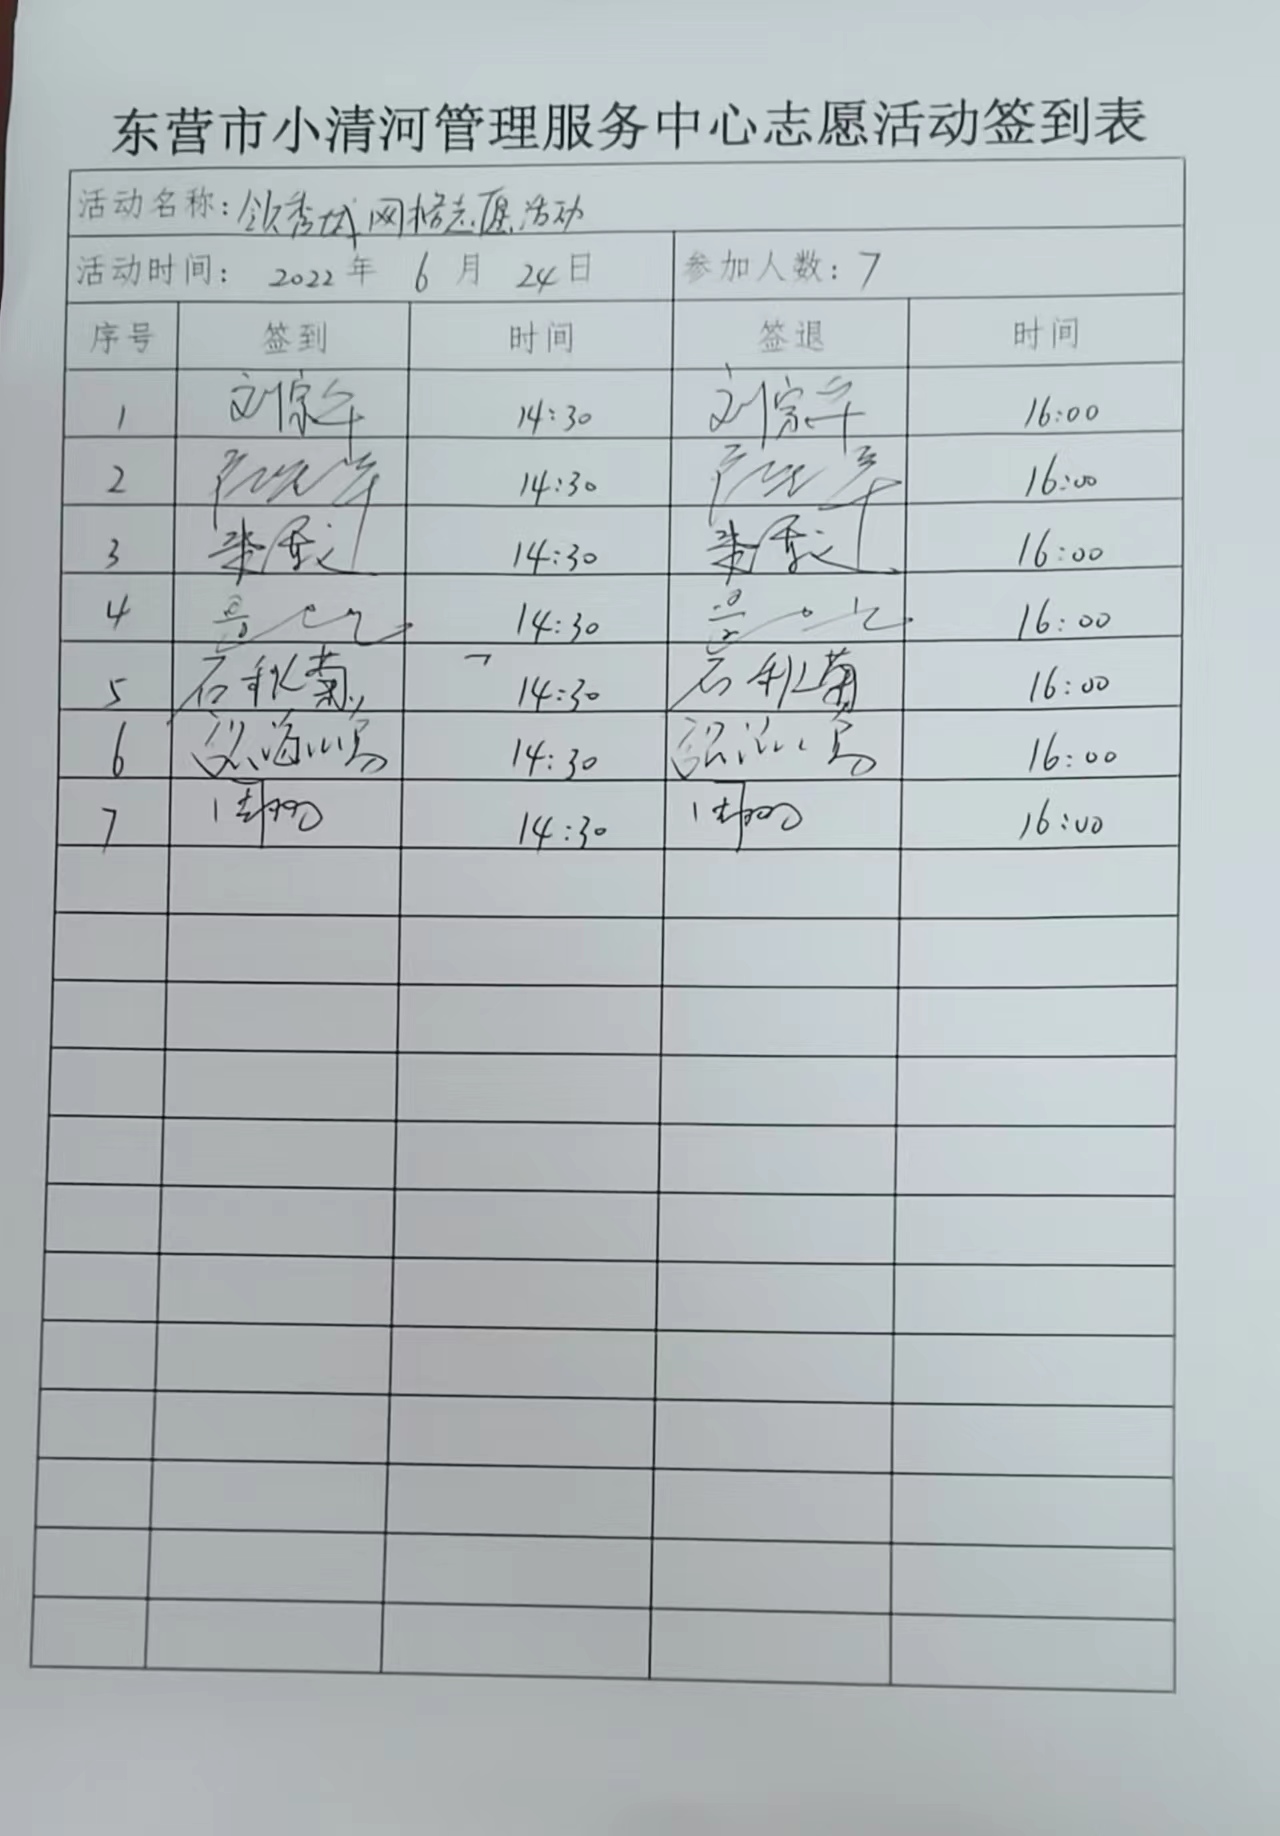 东营市小清河管理服务中心志愿活动签到表
活动名称:领秀城网格志愿活动
活动时间: 2022年 6月 24日 参加人数:7
序号 签到 时间 签退 时间
1 刘家 14:30 刘家 16:00
2 14:30 16:00
3 14:30 16:00
4 14:30 16:00
5 石秋菊 14:30 石秋菊 16:00
6 14:30 16:00
7 周 14:30 周 16:00